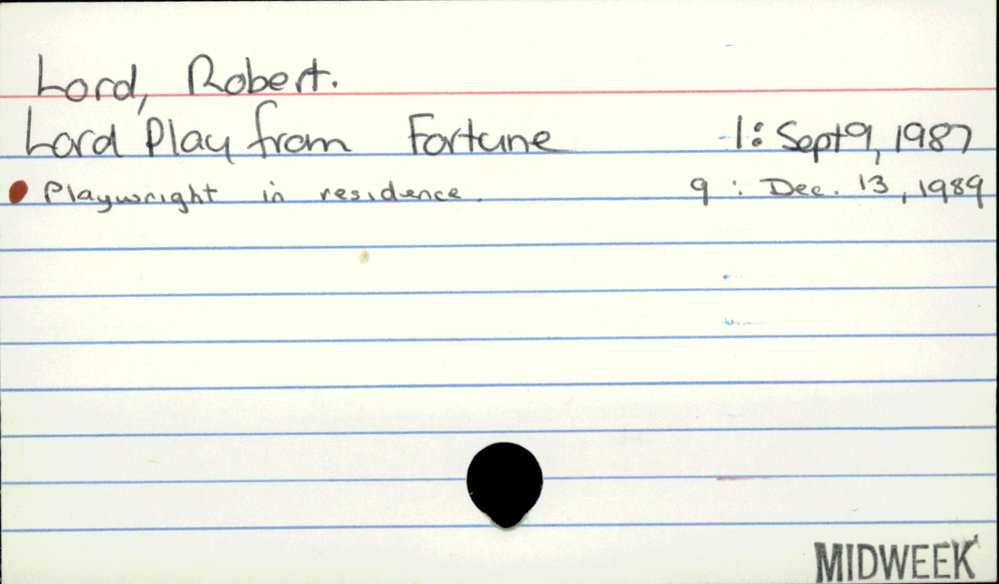 Lord, Robert.
Lord Play from Fortune 1: Sept 9, 1987
Playwright in residence. 9: Dec. 13, 1989
MIDWEEK